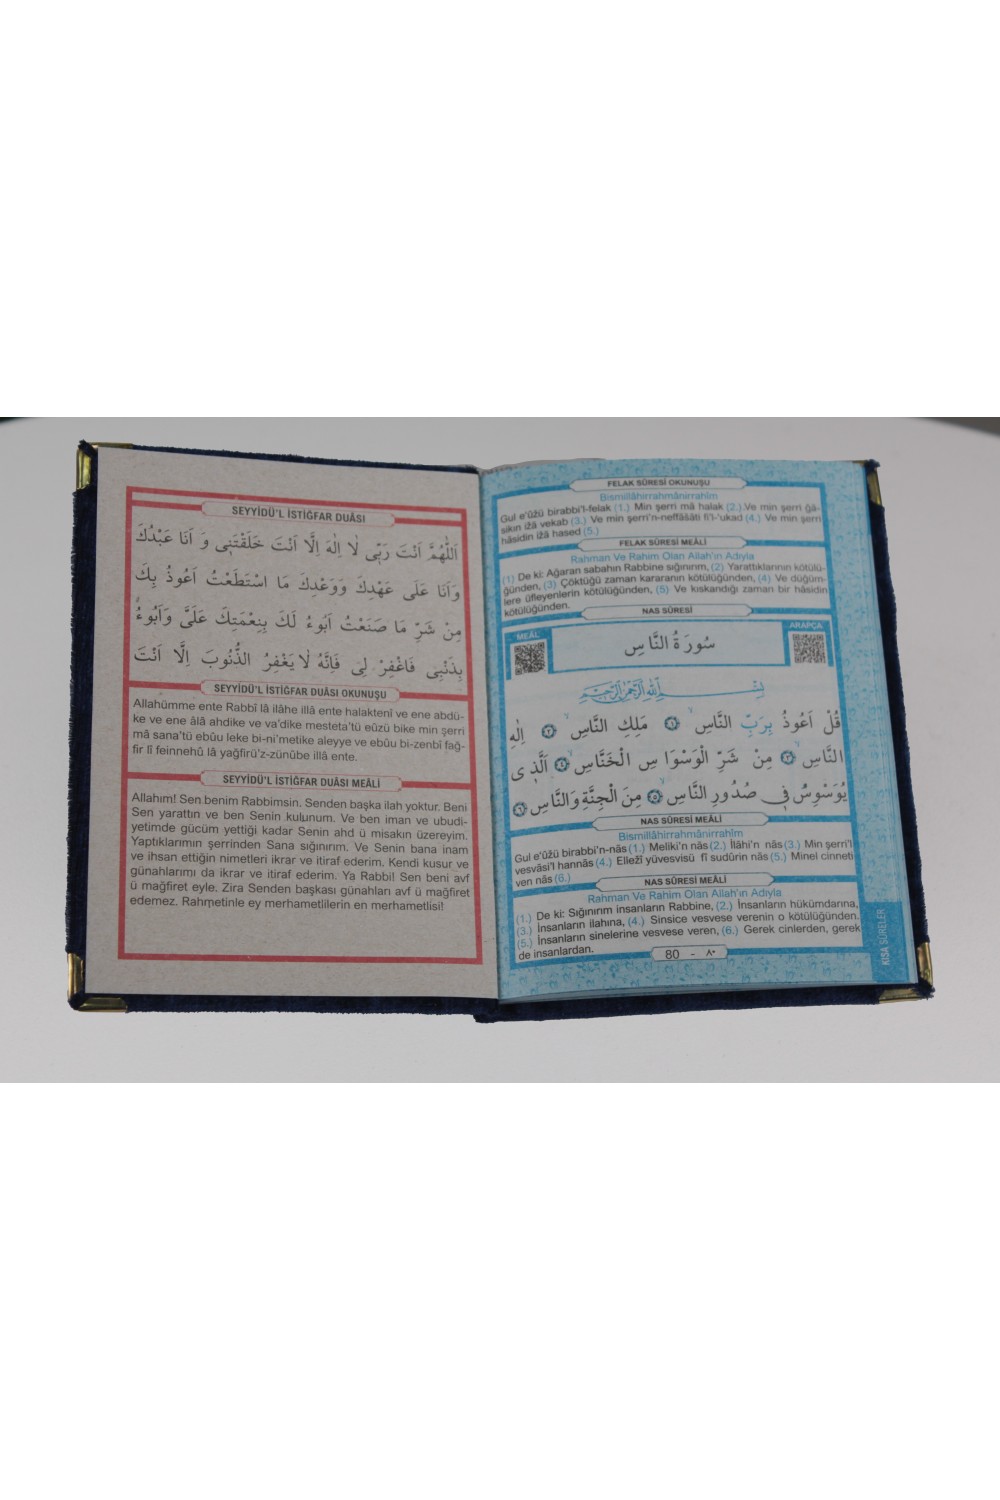 SEYYİDÜ'L İSTİĞFAR DUÂSI
اَللّٰهُمَّ اَنْتَ رَبّ۪ى لَا اِلٰهَ اِلَّا اَنْتَ خَلَقْتَن۪ى وَ اَنَا عَبْدُكَ
وَاَنَا عَلَى عَهْدِكَ وَوَعْدِكَ مَا اسْتَطَعْتُ اَعُوذُ بِكَ
مِنْ شَرِّ مَا صَنَعْتُ اَبُوءُ لَكَ بِنِعْمَتِكَ عَلَىَّ وَاَبُوءُ
بِذَنْب۪ى فَاغْفِرْ ل۪ى فَاِنَّهُ لَا يَغْفِرُ الذُّنُوبَ اِلَّا اَنْتَ
SEYYİDÜ'L İSTİĞFAR DUÂSI OKUNUŞU
Allahümme ente Rabbî lâ ilâhe illâ ente halaktenî ve ene abdü-
ke ve ene âlâ ahdike ve va'dike mesteta'tü eûzü bike min şerri
mâ sana'tü ebûu leke bi-ni'metike aleyye ve ebûu bi-zenbî fağ-
fir lî feinnehû lâ yağfirü'z-zünûbe illâ ente.
SEYYİDÜ'L İSTİĞFAR DUÂSI MEÂLİ
Allahım! Sen benim Rabbimsin. Senden başka ilah yoktur. Beni
Sen yarattın ve ben Senin kulunum. Ve ben iman ve ubudi-
yetimde gücüm yettiği kadar Senin ahd ü misakın üzereyim.
Yaptıklarımın şerrinden Sana sığınırım. Ve Senin bana inam
ve ihsan ettiğin nimetleri ikrar ve itiraf ederim. Kendi kusur ve
günahlarımı da ikrar ve itiraf ederim. Ya Rabbi! Sen beni avf
ü mağfiret eyle. Zira Senden başkası günahları avf ü mağfiret
edemez. Rahmetinle ey merhametlilerin en merhametlisi!
FELAK SÛRESİ OKUNUŞU
Bismillâhirrahmânirrahîm
Gul e'ûzü birabbi'l-felak (1.) Min şerri mâ halak (2.) Ve min şerri ğâ-
sikın izâ vekab (3.) Ve min şerri'n-neffâsâti fi'l-'ukad (4.) Ve min şerri
hâsidin izâ hased (5.)
FELAK SÛRESİ MEÂLİ
Rahman Ve Rahim Olan Allah'ın Adıyla
(1) De ki: Ağaran sabahın Rabbine sığınırım, (2) Yarattıklarının kötülü-
ğünden, (3) Çöktüğü zaman kararanın kötülüğünden, (4) Ve düğüm-
lere üfleyenlerin kötülüğünden, (5) Ve kıskandığı zaman bir hâsidin
kötülüğünden.
NAS SÛRESİ
MEÂL
سُورَةُ النَّاسِ
ARAPÇA
بِسْمِ اللّٰهِ الرَّحْمٰنِ الرَّح۪يمِ
قُلْ اَعُوذُ بِرَبِّ النَّاسِۙ ﴿١﴾ مَلِكِ النَّاسِۙ ﴿٢﴾ اِلٰهِ
النَّاسِۙ ﴿٣﴾ مِنْ شَرِّ الْوَسْوَاسِ الْخَنَّاسِۙ ﴿٤﴾ اَلَّذ۪ى
يُوَسْوِسُ ف۪ى صُدُورِ النَّاسِۙ ﴿٥﴾ مِنَ الْجِنَّةِ وَالنَّاسِ ﴿٦﴾
NAS SÛRESİ MEÂLİ
Bismillâhirrahmânirrahîm
Gul e'ûzü birabbi'n-nâs (1.) Meliki'n nâs (2.) İlâhi'n nâs (3.) Min şerri'l
vesvâsi'l hannâs (4.) Ellezî yüvesvisü fî sudûrin nâs (5.) Minel cinneti
ven nâs (6.)
NAS SÛRESİ MEÂLİ
Rahman Ve Rahim Olan Allah'ın Adıyla
(1.) De ki: Sığınırım insanların Rabbine, (2.) İnsanların hükümdarına,
(3.) İnsanların ilahına, (4.) Sinsice vesvese verenin o kötülüğünden.
(5.) İnsanların sinelerine vesvese veren, (6.) Gerek cinlerden, gerek
de insanlardan.
80 - ٨٠
KISA SÛRELER